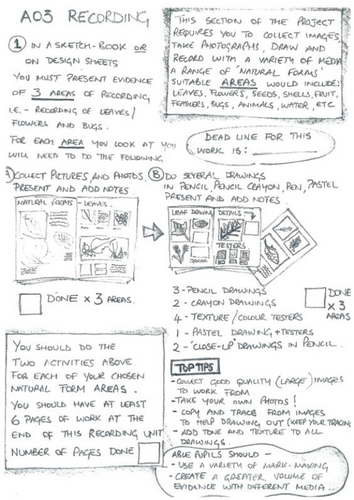 AO3 RECORDING
THIS SECTION OF THE PROJECT
REQUIRES YOU TO COLLECT IMAGES
TAKE PHOTOGRAPHS, DRAW AND
RECORD WITH A VARIETY OF MEDIA
A RANGE OF 'NATURAL FORMS'
SUITABLE AREAS WOULD INCLUDE:
LEAVES, FLOWERS, SEEDS, SHELLS, FRUIT,
FEATHERS, BUGS, ANIMALS, WATER, ETC
1 IN A SKETCH-BOOK OR
ON DESIGN SHEETS
YOU MUST PRESENT EVIDENCE
OF 3 AREAS OF RECORDING
I.E - RECORDING OF LEAVES/
FLOWERS AND BUGS.
FOR EACH AREA YOU LOOK AT YOU
WILL NEED TO DO THE FOLLOWING
DEAD LINE FOR THIS
WORK IS:
A COLLECT PICTURES, AND PHOTOS,
PRESENT AND ADD NOTES
NATURAL FORMS
LEAVES
DONE x 3 AREAS.
B DO SEVERAL DRAWINGS
IN PENCIL, PENCIL CRAYON, PEN, PASTEL
PRESENT AND ADD NOTES
LEAF DRAWING
DETAILS
TESTERS
3 - PENCIL DRAWINGS
2 - CRAYON DRAWINGS
4 - TEXTURE / COLOUR TESTERS
1 - PASTEL DRAWING + TESTERS
2 - 'CLOSE-UP' DRAWINGS IN PENCIL.
DONE
x 3
AREAS
YOU SHOULD DO THE
TWO ACTIVITIES ABOVE
FOR EACH OF YOUR CHOSEN
NATURAL FORM AREAS.
YOU SHOULD HAVE AT LEAST
6 PAGES OF WORK AT THE
END OF THIS RECORDING UNIT
NUMBER OF PAGES DONE
TOP TIPS
- COLLECT GOOD QUALITY (LARGE) IMAGES
TO WORK FROM
- TAKE YOUR OWN PHOTOS!
- COPY AND TRACE FROM IMAGES
TO HELP DRAWING OUT (KEEP YOUR TRACING
- ADD TONE AND TEXTURE TO ALL
DRAWINGS.
ABLE PUPILS SHOULD -
- USE A VARIETY OF MARK-MAKING,
- CREATE A GREATER VOLUME OF
EVIDENCE WITH DIFFERENT MEDIA.